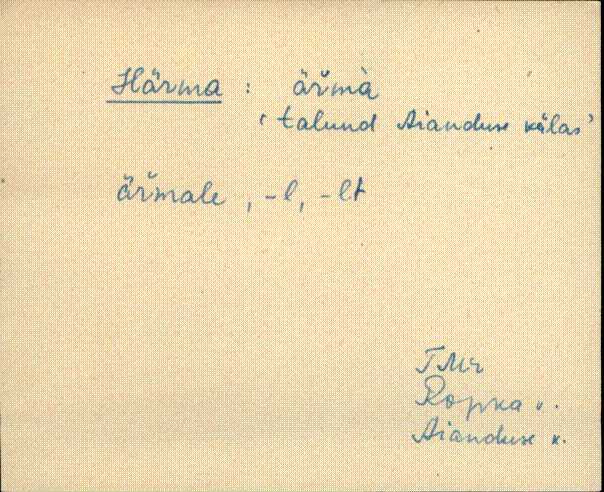 Härma : är̆mà
'talund Aianduse külas'
är̆male, -l, -lt
TMr
Ropka v.
Aianduse k.